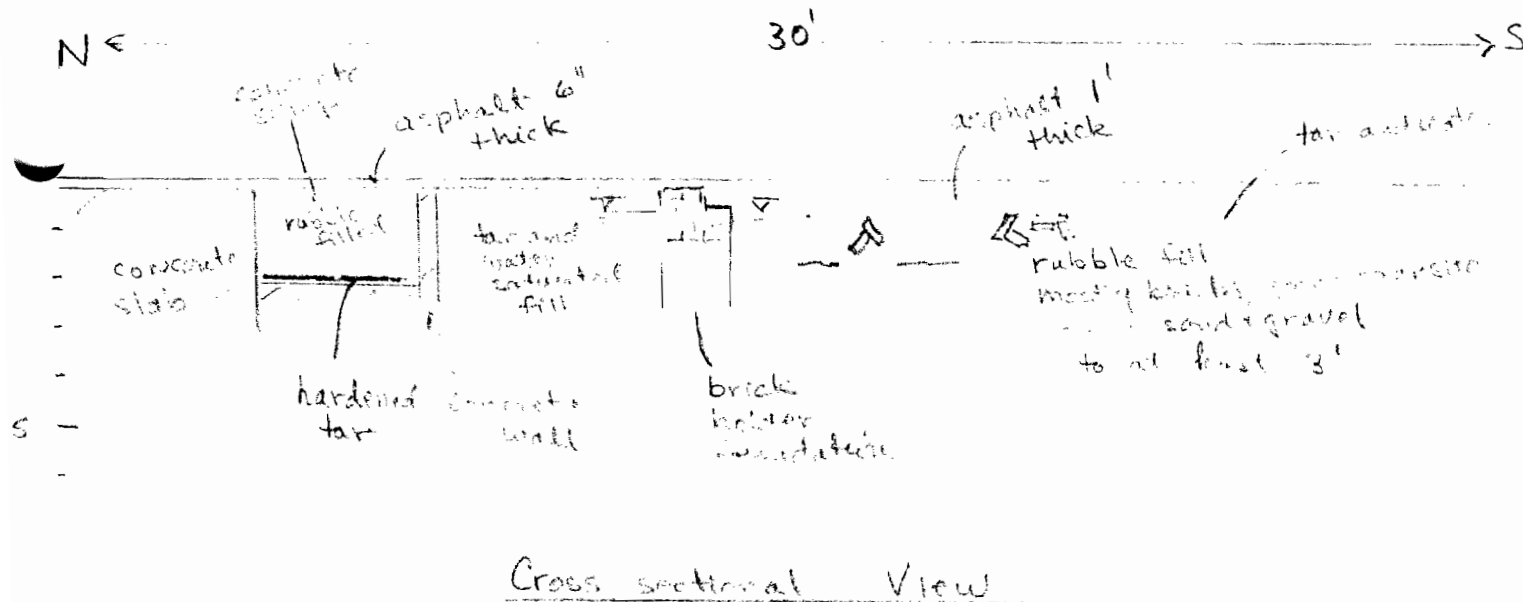 N 30' S
concrete
asphalt 6"
thick
asphalt 1'
thick
tar and
rubble
filled
concrete
slab
tar and
water
saturated
fill
rubble fill
mostly
sand & gravel
to at least 3'
hardened
tar
concrete
wall
brick
holder
foundation
5
Cross sectional View